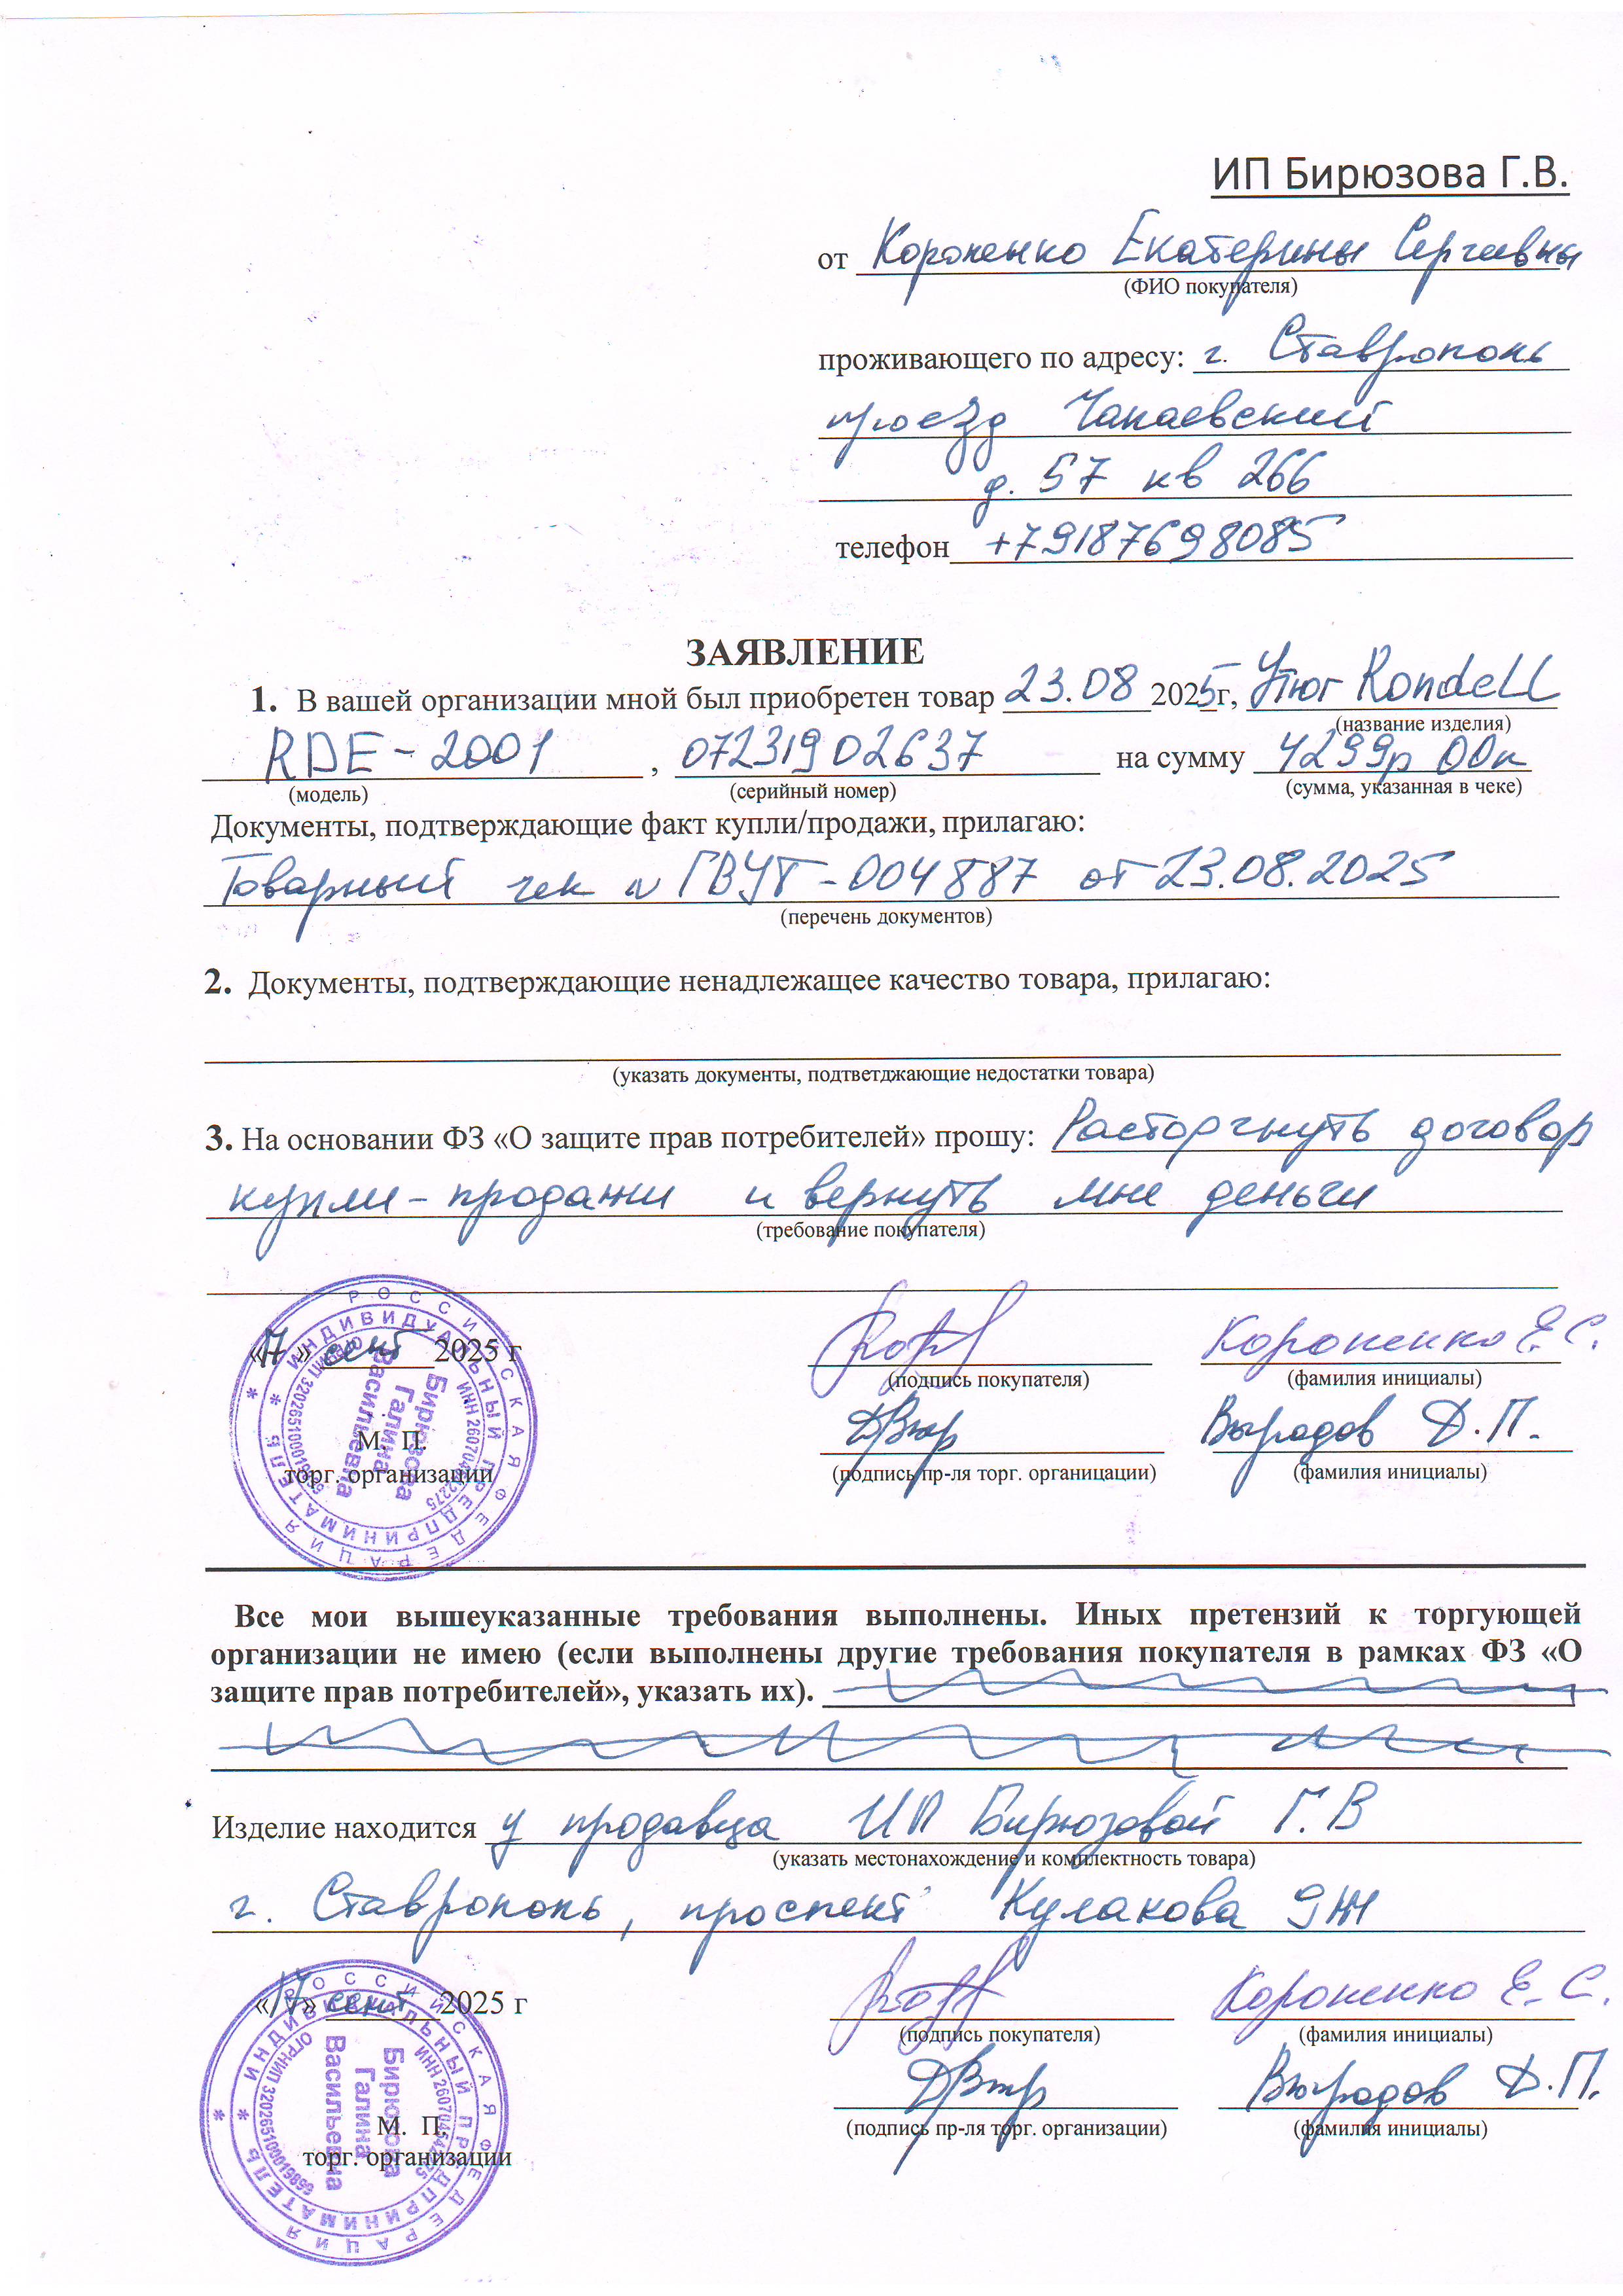 ИП Бирюзова Г.В.
от Короненко Екатерины Сергеевны
(ФИО покупателя)
проживающего по адресу: г. Ставрополь
проезд Чапаевский
д. 57 кв 266
телефон +79187698085
ЗАЯВЛЕНИЕ
1. В вашей организации мной был приобретен товар 23.08 2025 г, Утюг Rondell
(название изделия)
RDE-2001, 07231902637 на сумму 4299р 00к
(модель) (серийный номер) (сумма, указанная в чеке)
Документы, подтверждающие факт купли/продажи, прилагаю:
Товарный чек № ГВУТ-004887 от 23.08.2025
(перечень документов)
2. Документы, подтверждающие ненадлежащее качество товара, прилагаю:
(указать документы, подтветджающие недостатки товара)
3. На основании ФЗ «О защите прав потребителей» прошу: Расторгнуть договор
купли-продажи и вернуть мне деньги
(требование покупателя)
«17» сент 2025 г Короненко Е.С.
(подпись покупателя) (фамилия инициалы)
Выродов Д.П.
М. П.
торг. организации (подпись пр-ля торг. органицации) (фамилия инициалы)
РОССИЙСКАЯ ФЕДЕРАЦИЯ
ИНДИВИДУАЛЬНЫЙ ПРЕДПРИНИМАТЕЛЬ
Бирюзова
Галина
Васильевна
Все мои вышеуказанные требования выполнены. Иных претензий к торгующей
организации не имею (если выполнены другие требования покупателя в рамках ФЗ «О
защите прав потребителей», указать их).
Изделие находится у продавца ИП Бирюзовой Г.В
(указать местонахождение и комплектность товара)
г. Ставрополь, проспект Кулакова
«17» сент 2025 г Короненко Е.С.
(подпись покупателя) (фамилия инициалы)
Выродов Д.П.
М. П.
торг. организации (подпись пр-ля торг. организации) (фамилия инициалы)
РОССИЙСКАЯ ФЕДЕРАЦИЯ
ИНДИВИДУАЛЬНЫЙ ПРЕДПРИНИМАТЕЛЬ
Бирюзова
Галина
Васильевна